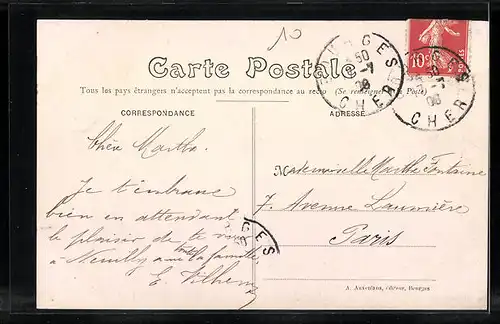 10
Carte Postale
Tous les pays étrangers n'acceptent pas la correspondance au recto (Se renseigner à la Poste)
CORRESPONDANCE
ADRESSE
Chère Marthe.
Je t'embrasse
bien en attendant
le plaisir de te voir
à Neuilly avec toute la famille
E. Vilhem
Mademoiselle Marthe Fontaine
7. Avenue Laumière
Paris
BOURGES
CHER
10c
A. Auxenfans, éditeur, Bourges